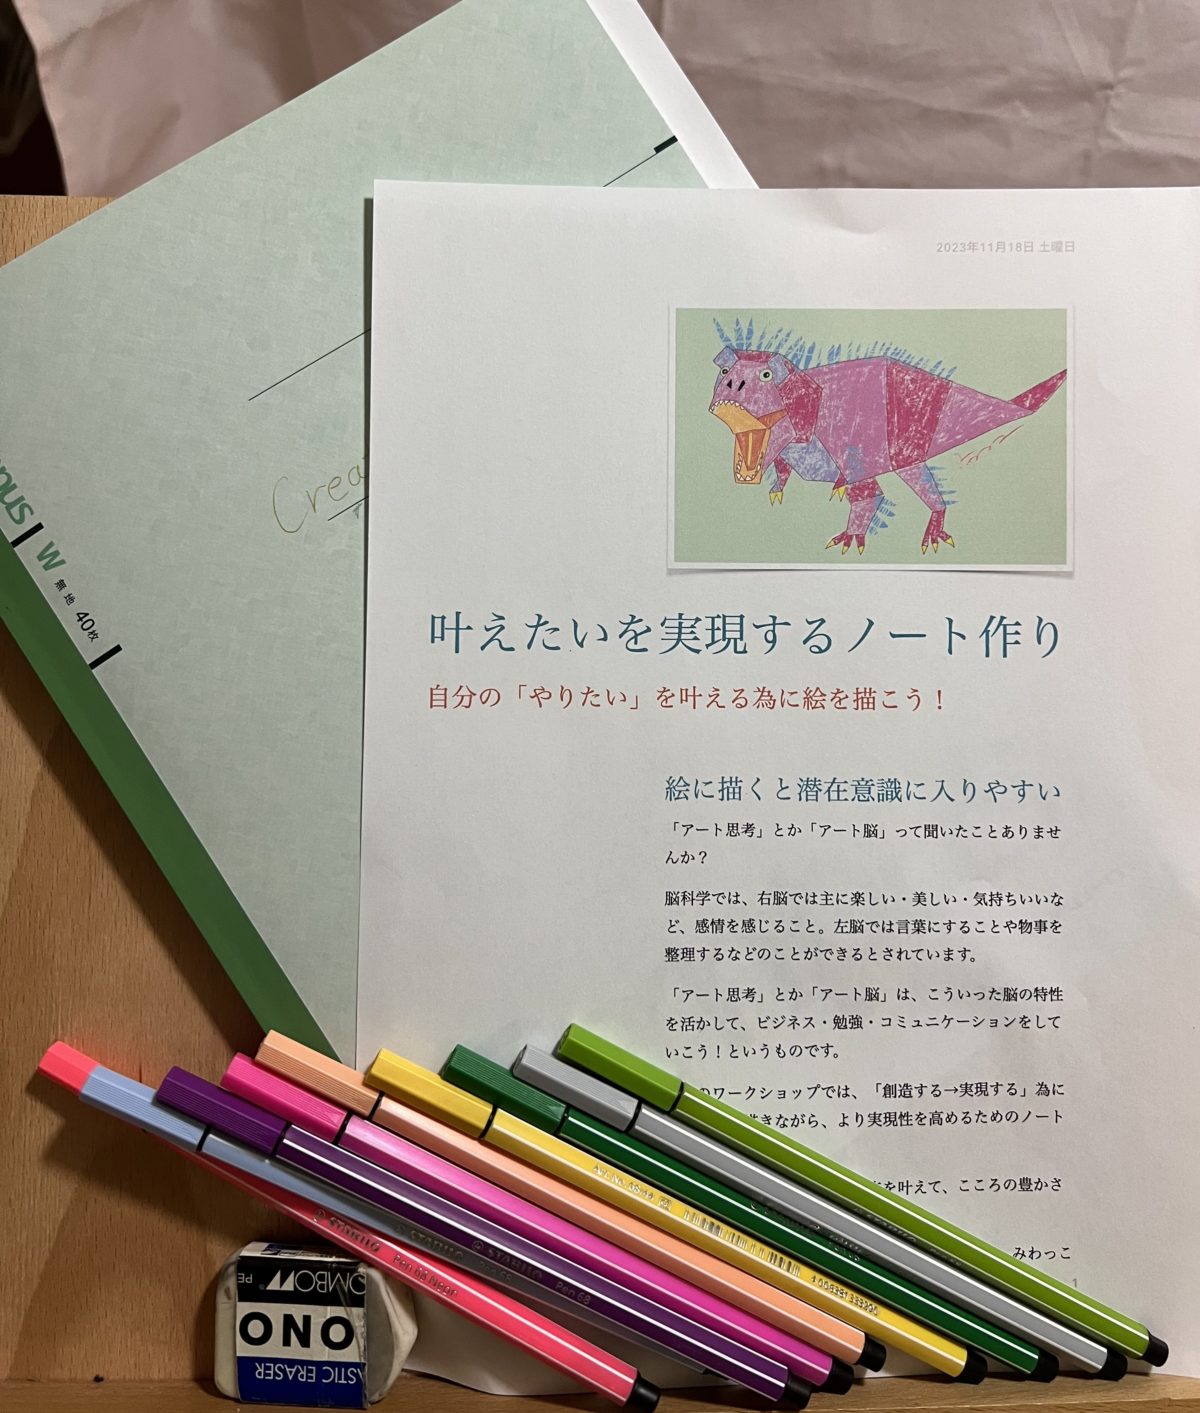 2023年11月18日 土曜日
叶えたいを実現するノート作り
自分の「やりたい」を叶える為に絵を描こう！
絵に描くと潜在意識に入りやすい
「アート思考」とか「アート脳」って聞いたことありませ
んか？
脳科学では、右脳では主に楽しい・美しい・気持ちいいな
ど、感情を感じること。左脳では言葉にすることや物事を
整理するなどのことができるとされています。
「アート思考」とか「アート脳」は、こういった脳の特性
を活かして、ビジネス・勉強・コミュニケーションをして
いこう！というものです。
のワークショップでは、「創造する→実現する」為に
きながら、より実現性を高めるためのノート
を叶えて、こころの豊かさ
みわっこ
1
Crea
pus
W 無地 40枚
STABILO Pen 68 Neon
STABILO Pen 68
STABILO Pen 68
OMBOW PE
ONO
ASTIC ERASER